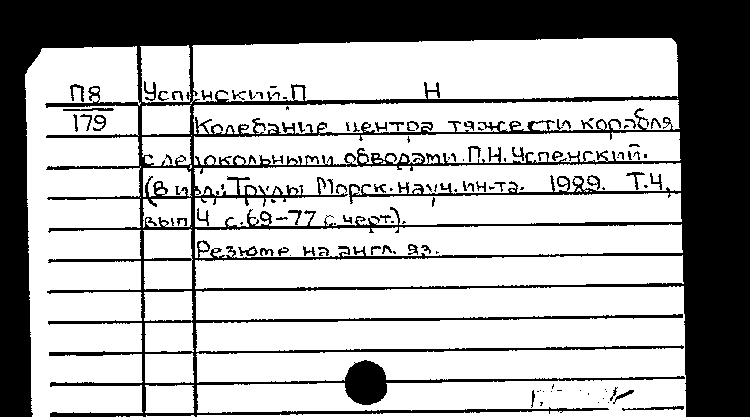 П8 Успенский.П Н
179 Колебание центра тяжести корабля
с ледокольными обводами.П.Н.Успенский.
(В изд.: Труды Морск.науч.ин-та. 1929. Т.4,
вып 4 с.69-77 с черт.).
Резюме на англ. яз.